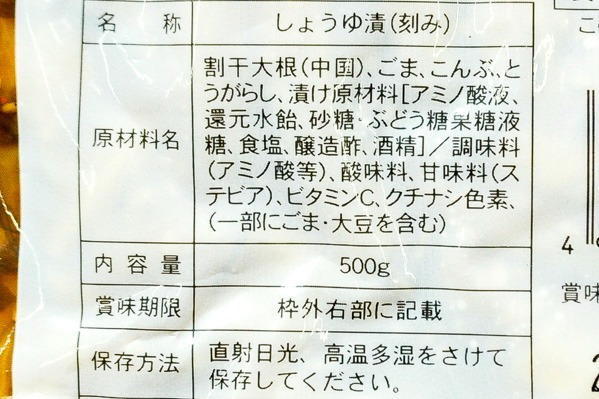 名称 しょうゆ漬(刻み)
原材料名 割干大根(中国)、ごま、こんぶ、と
うがらし、漬け原材料[アミノ酸液、
還元水飴、砂糖・ぶどう糖果糖液
糖、食塩、醸造酢、酒精]／調味料
(アミノ酸等)、酸味料、甘味料(ス
テビア)、ビタミンC、クチナシ色素、
(一部にごま・大豆を含む)
内容量 500g
賞味期限 枠外右部に記載
保存方法 直射日光、高温多湿をさけて
保存してください。
こ
4
賞味